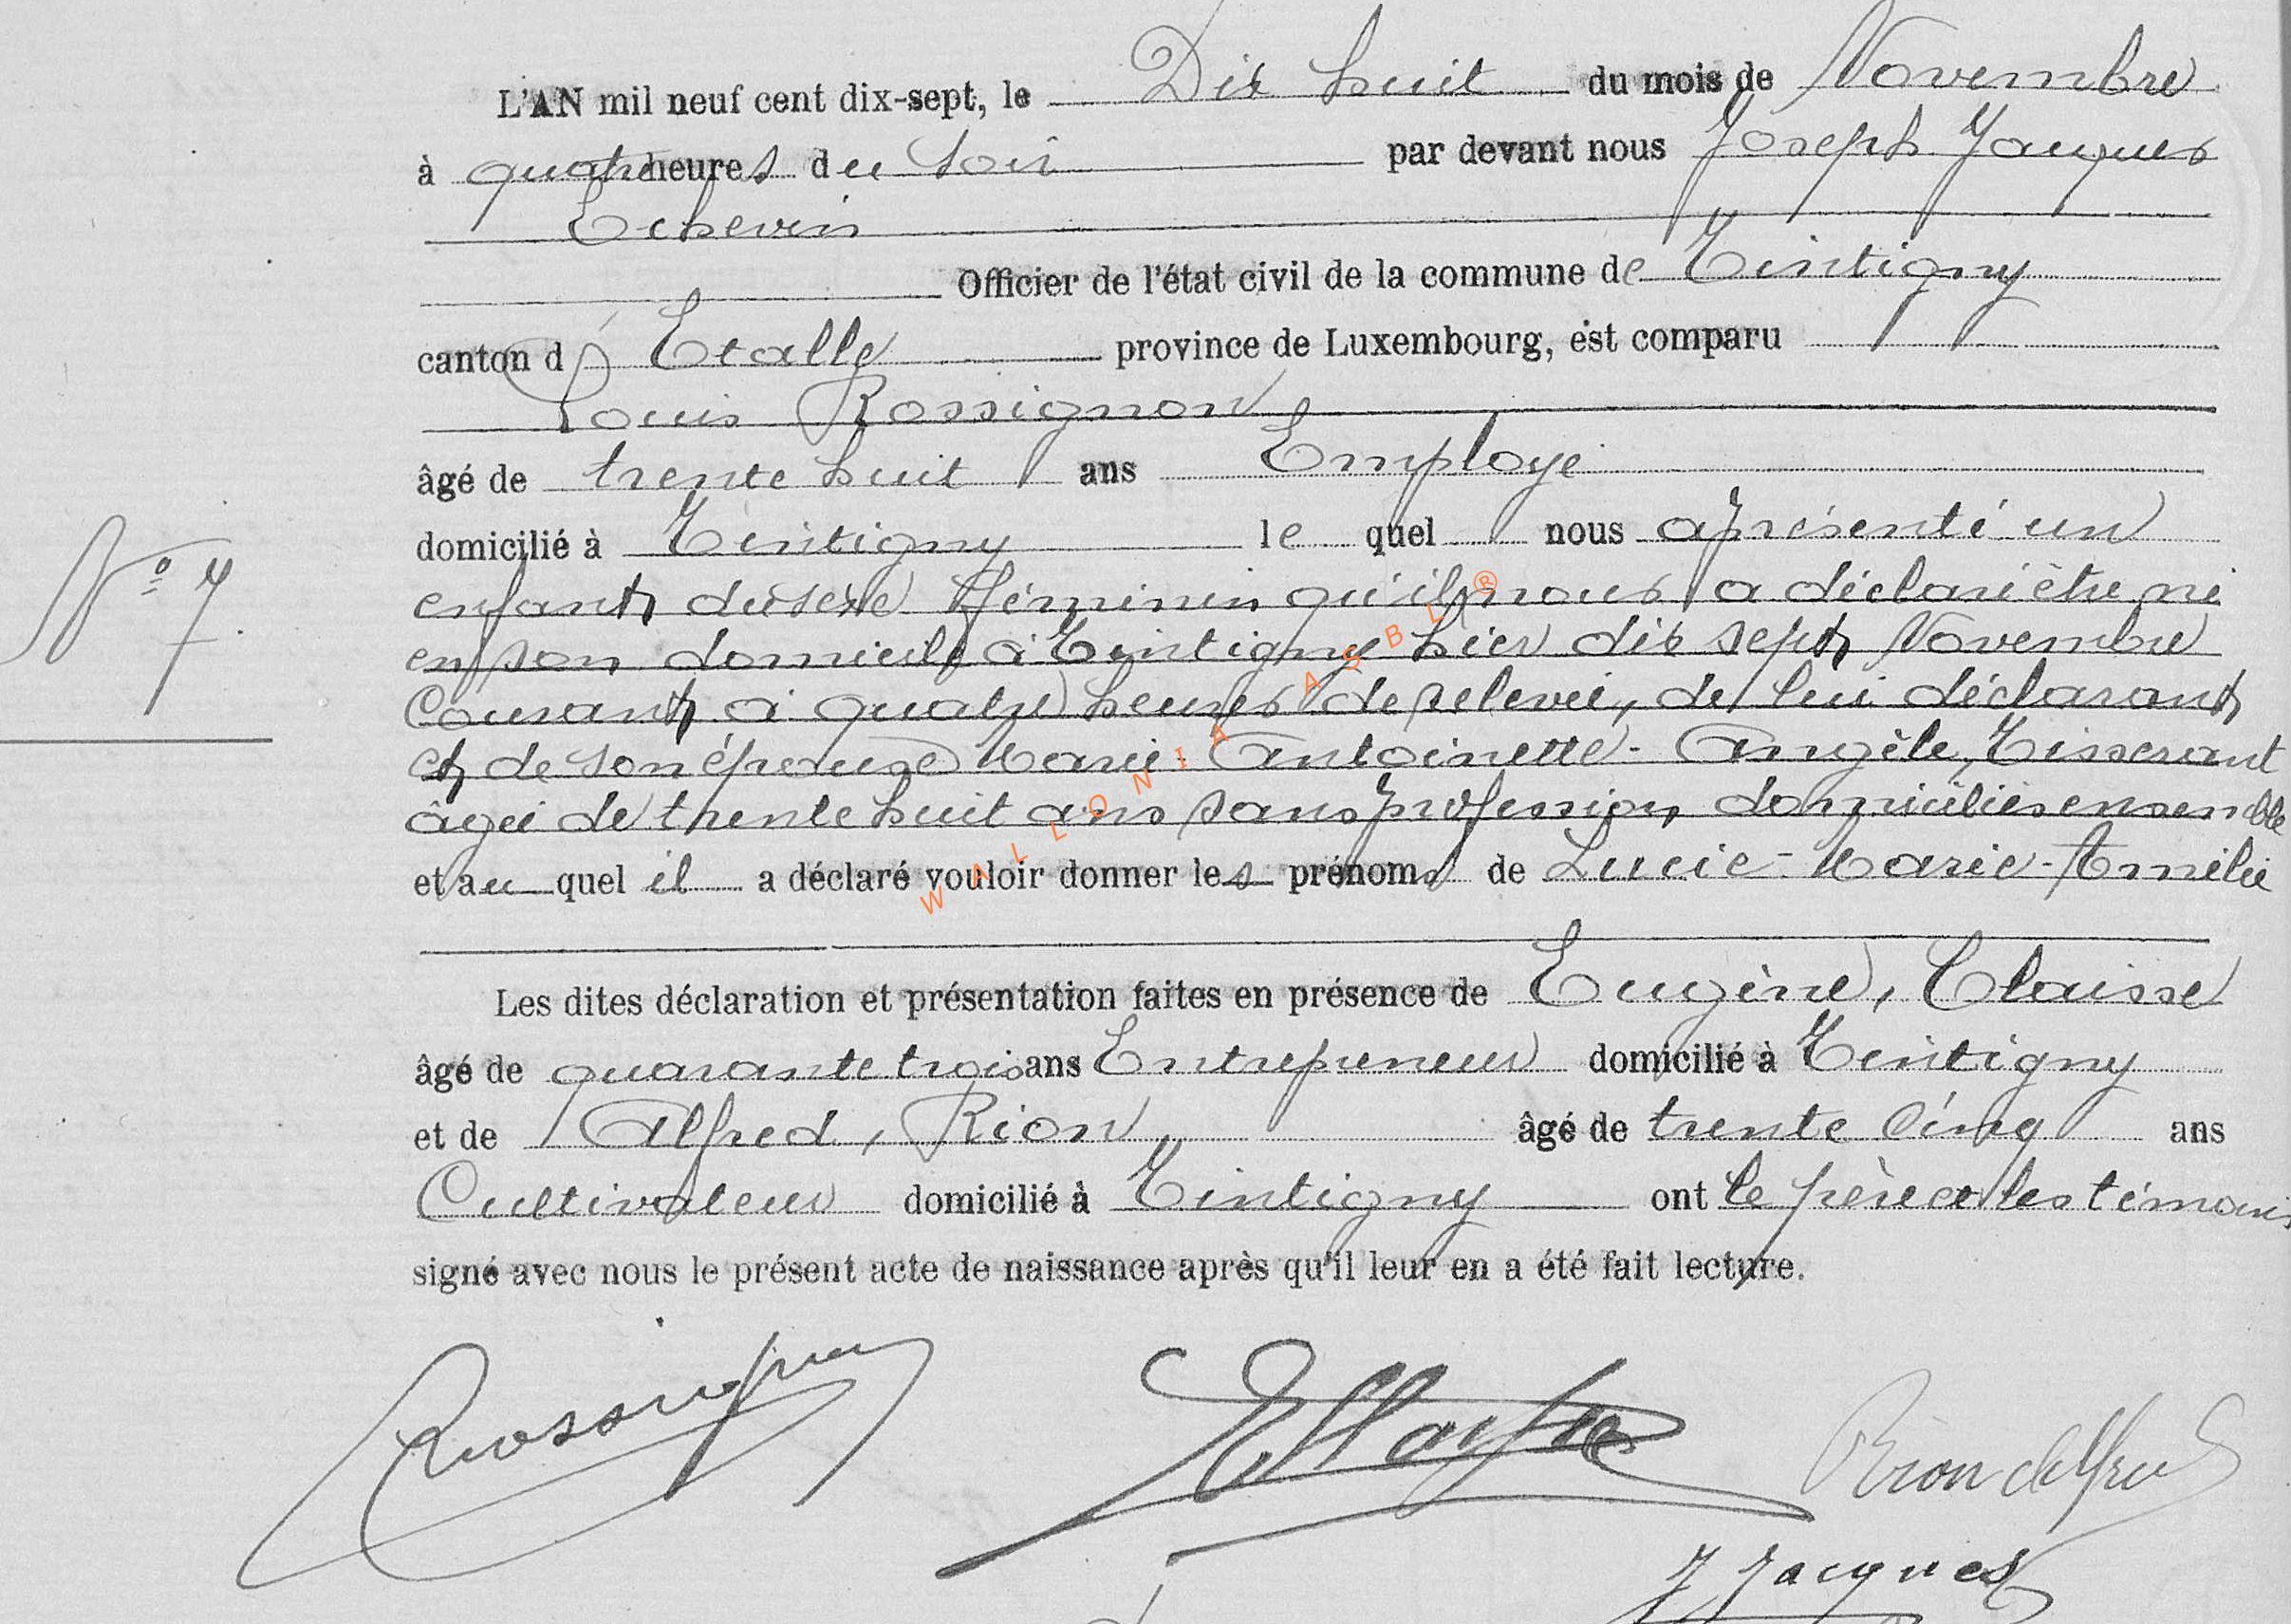 L'AN mil neuf cent dix-sept, le Dix huit du mois de Novembre
à quatre heures du soir par devant nous Joseph Jacques
Echevin
Officier de l'état civil de la commune de Tintigny
canton d' Etalle province de Luxembourg, est comparu
Louis Rossignon
âgé de trente huit ans Employé
domicilié à Tintigny le quel nous a présenté un
N° 7
enfant du sexe féminin qu'il nous a déclaré être né
en son domicile à Tintigny hier dix sept Novembre
Courant à quatre heures de relevée, de lui déclarant
et de son épouse Marie Antoinette - Angèle, Tisserant
âgée de trente huit ans sans profession domiciliés ensemble
et au quel il a déclaré vouloir donner les prénoms de Lucie - Marie - Amélie
Les dites déclaration et présentation faites en présence de Eugène, Claisse
âgé de quarante trois ans Entrepreneur domicilié à Tintigny
et de Alfred, Rion âgé de trente cinq ans
Cultivateur domicilié à Tintigny ont le père et les témoins
signé avec nous le présent acte de naissance après qu'il leur en a été fait lecture.
Rossignon
Rion Alfred
J Jacques
WALLONIA ASBL ®